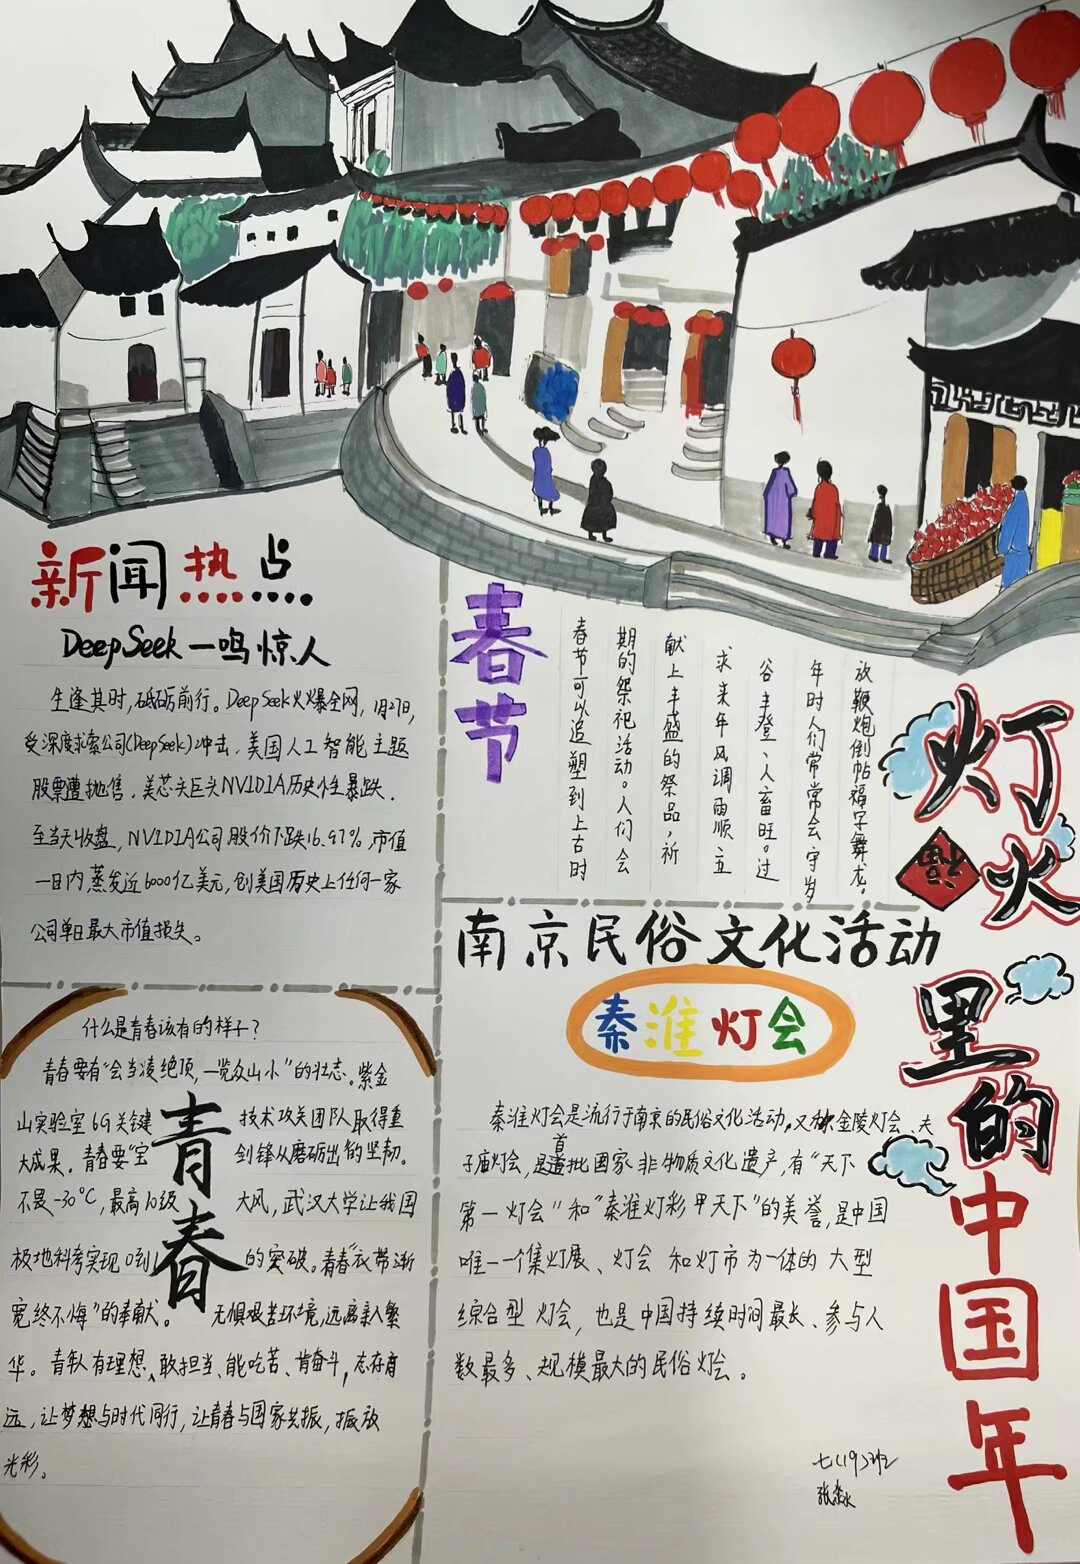 新闻热点
DeepSeek一鸣惊人
生逢其时,砥砺前行。DeepSeek火爆全网,1月27日,
受深度求索公司(DeepSeek)冲击,美国人工智能主题
股票遭抛售,美芯片巨头NVIDIA历史性暴跌,
至当天收盘,NVIDIA公司股价下跌16.97%,市值
一日内蒸发近6000亿美元,创美国历史上任何一家
公司单日最大市值损失。
春节
春节可以追塑到上古时
期的祭祀活动。人们会
献上丰盛的祭品,祈
求来年风调雨顺、五
谷丰登、人畜旺。过
年时人们常常会守岁
放鞭炮倒帖福字舞龙。
灯火
福
里的
中国年
南京民俗文化活动
秦淮灯会
秦淮灯会是流行于南京的民俗文化活动,又称金陵灯会、夫
子庙灯会,是首批国家非物质文化遗产,有“天下
第一灯会”和“秦淮灯彩甲天下”的美誉,是中国
唯一一个集灯展、灯会和灯市为一体的大型
综合型灯会,也是中国持续时间最长、参与人
数最多、规模最大的民俗灯会。
七(19)班
什么是青春该有的样子?
青春要有“会当凌绝顶,一览众山小”的壮志。紫金
山实验室6G关键技术攻关团队取得重
大成果。青春要“宝剑锋从磨砺出”的坚韧。
不畏-30℃,最高10级大风,武汉大学让我国
极地科考实现0到1的突破。青春“衣带渐
宽终不悔”的奉献。无惧艰苦环境,远离亲人繁
华。青年人有理想、敢担当、能吃苦、肯奋斗,志存高
远,让梦想与时代同行,让青春与国家共振,振放
光彩。
青春